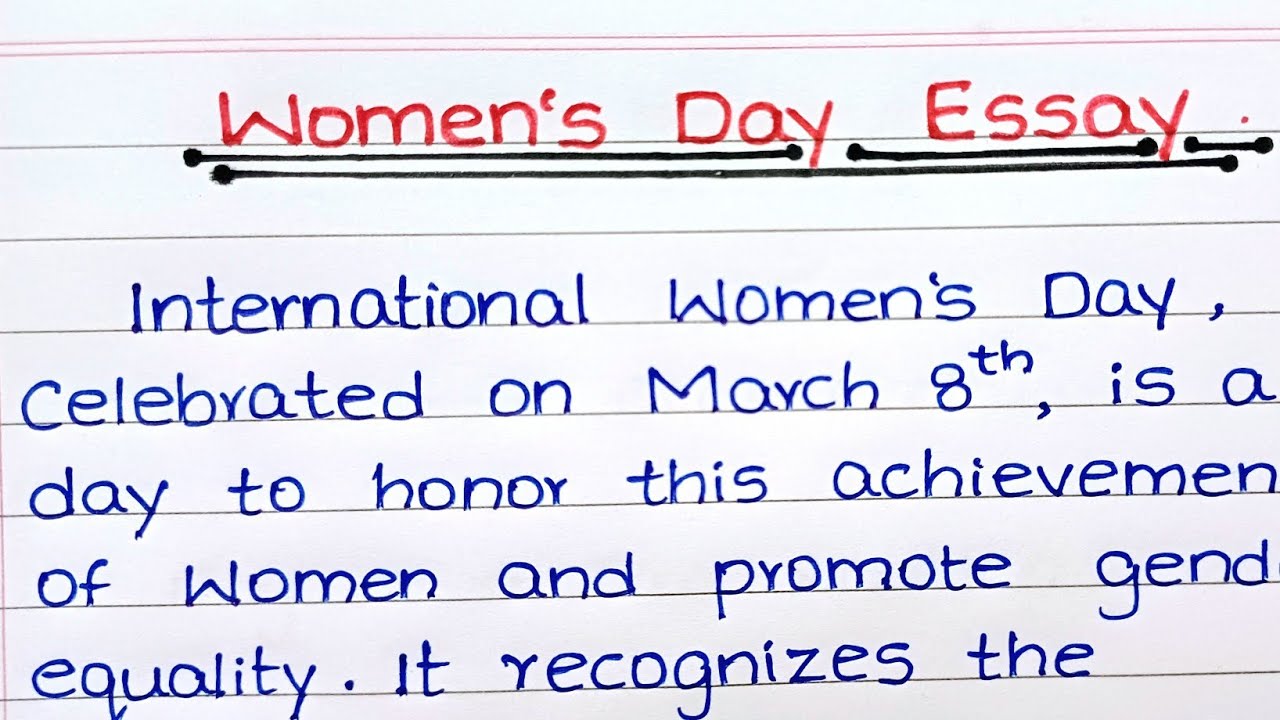 Women's Day Essay.
International Women's Day,
Celebrated on March 8th, is a
day to honor this achievemen
of Women and promote gend
equality. It recognizes the